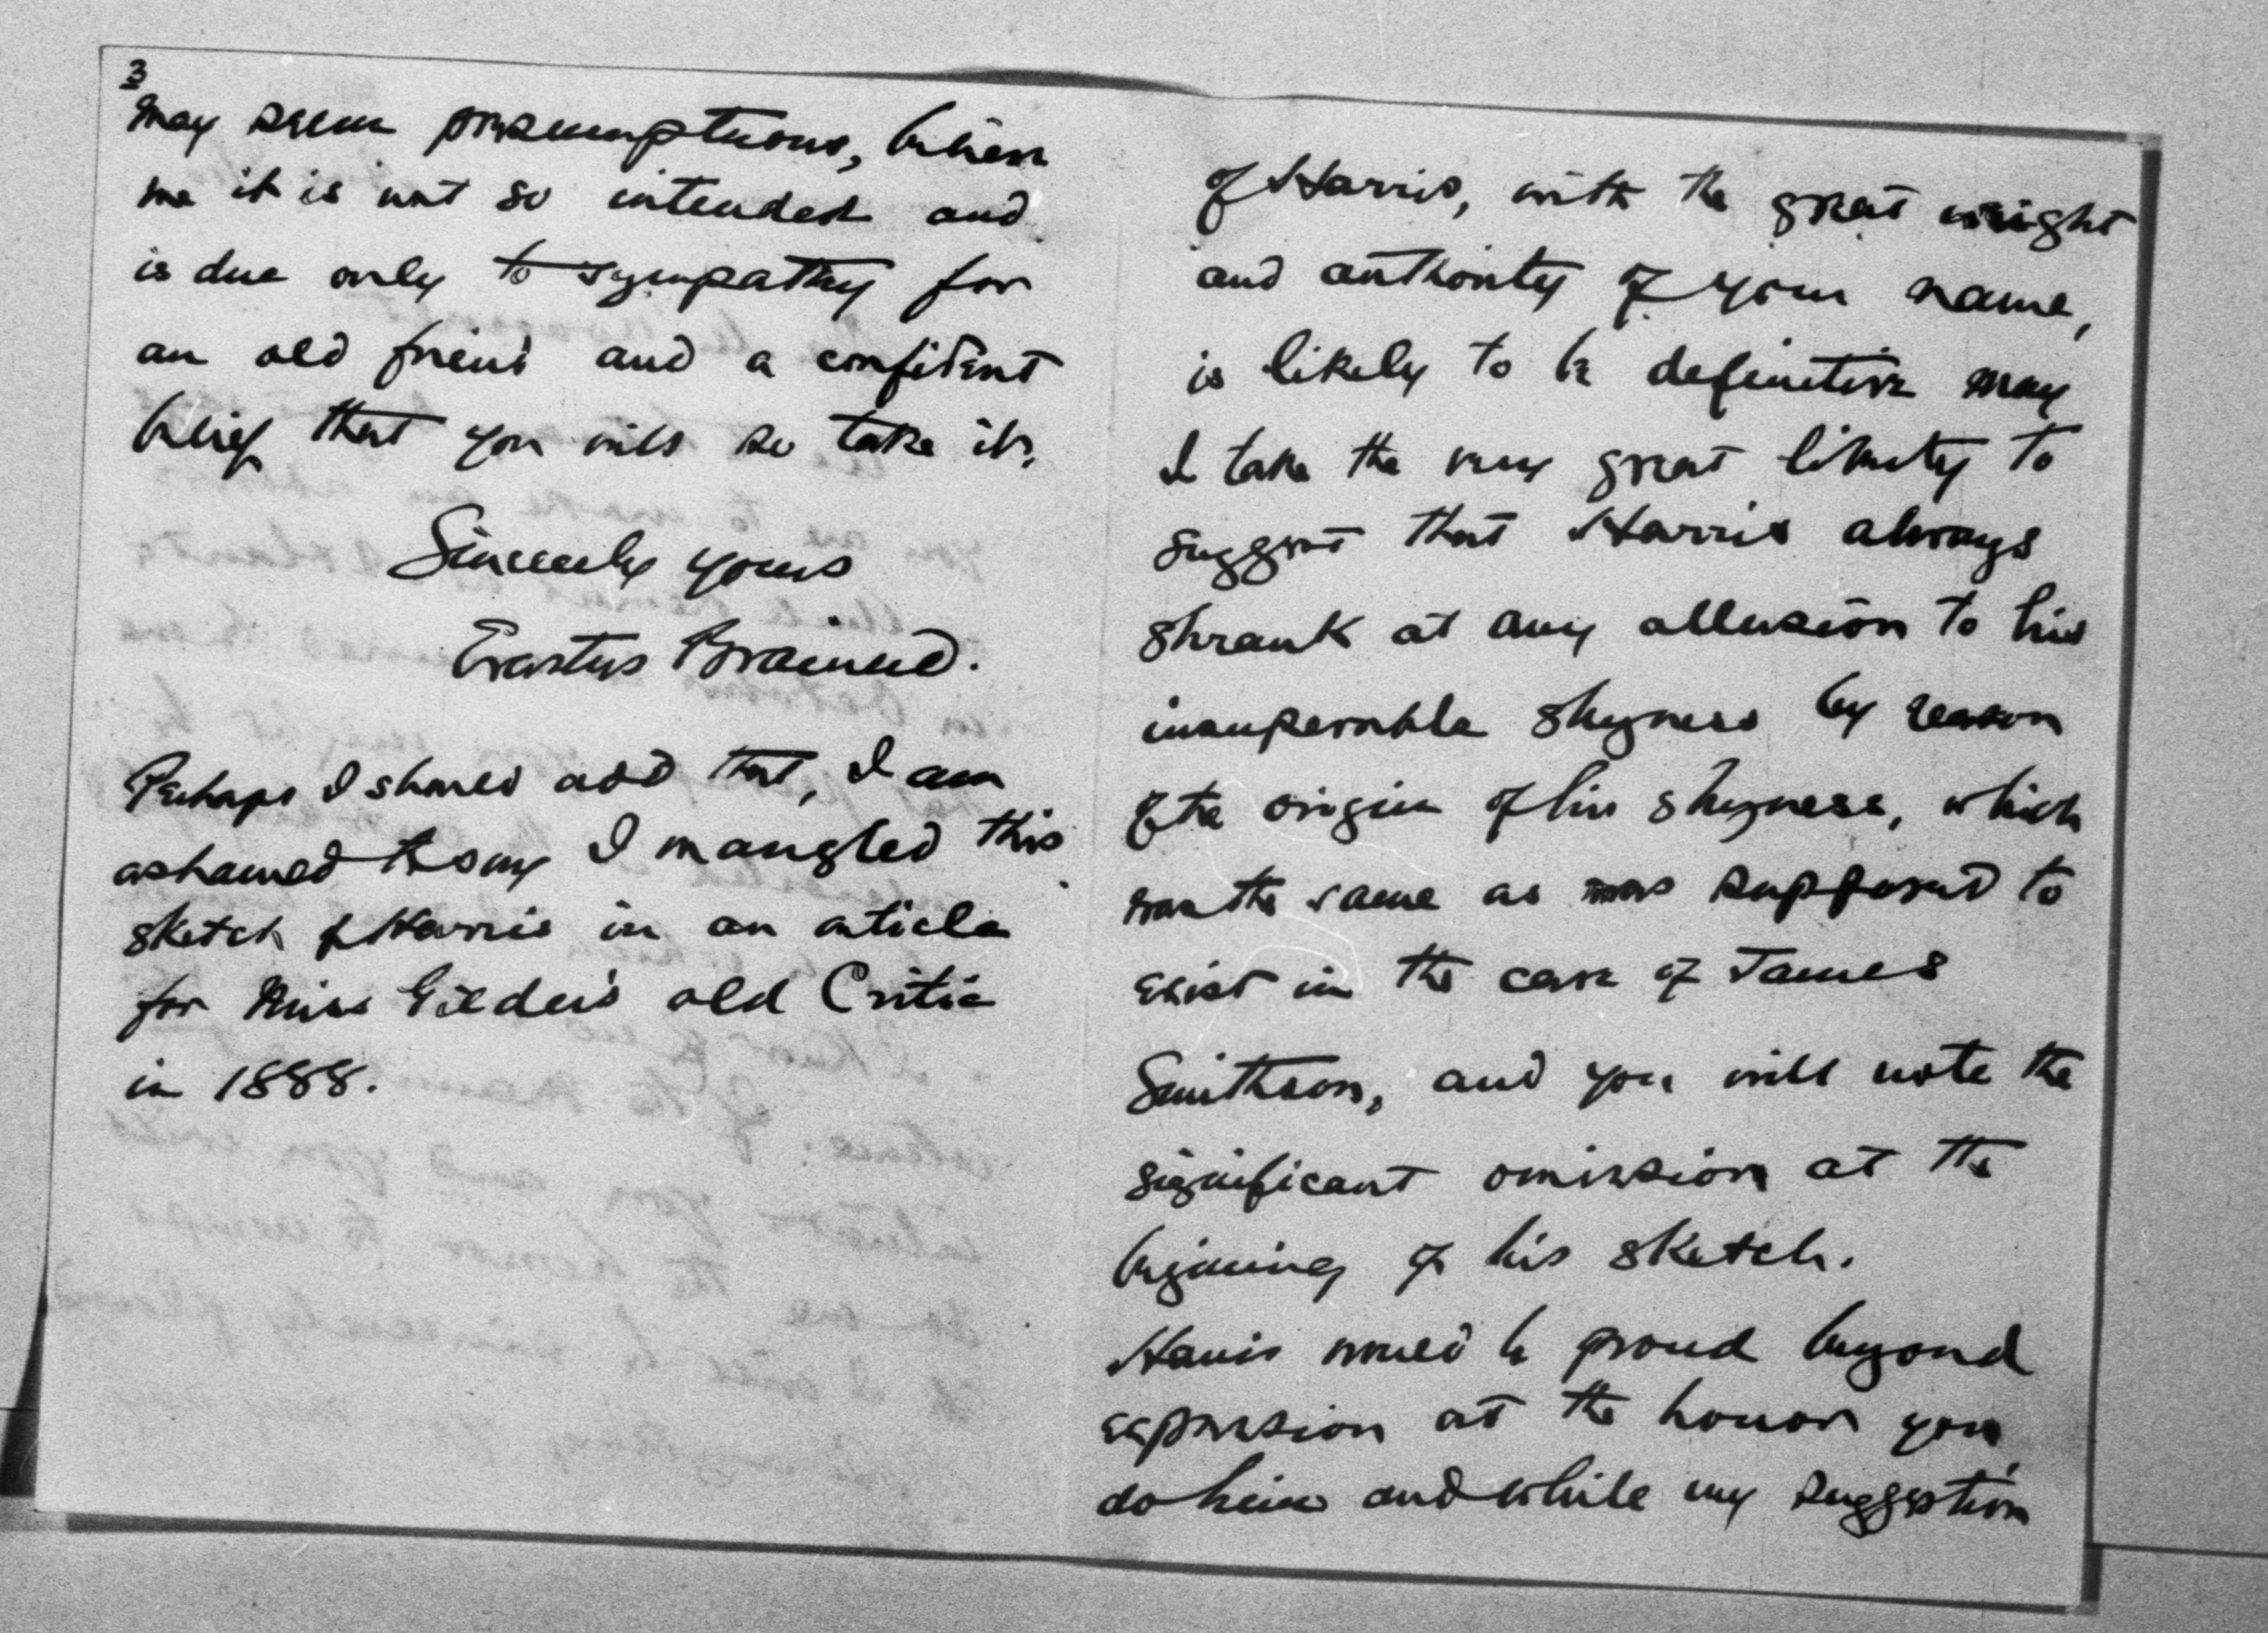 3
may seem presumptuous, believe
me it is not so intended and
is due only to sympathy for
an old friend and a confident
belief that you will so take it.
Sincerely yours
Erastus Brainerd.
Perhaps I should add that, I am
ashamed to say I mangled this
sketch of Harris in an article
for Miss Gilder's old Critic
in 1888.
of Harris, with the great weight
and authority of your name,
is likely to be definitive may
I take the very great liberty to
suggest that Harris always
shrank at any allusion to his
insuperable shyness by reason
of the origin of his shyness, which
was the same as was supposed to
exist in the case of James
Smithson, and you will note the
significant omission at the
beginning of his sketch.
Harris would be proud beyond
expression at the honor you
do him and while my suggestion